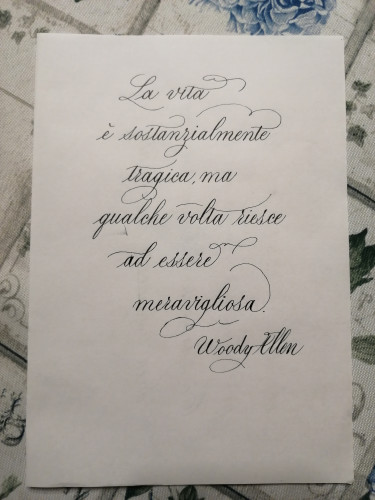 La vita
è sostanzialmente
tragica, ma
qualche volta riesce
ad essere
meravigliosa.
Woody Allen